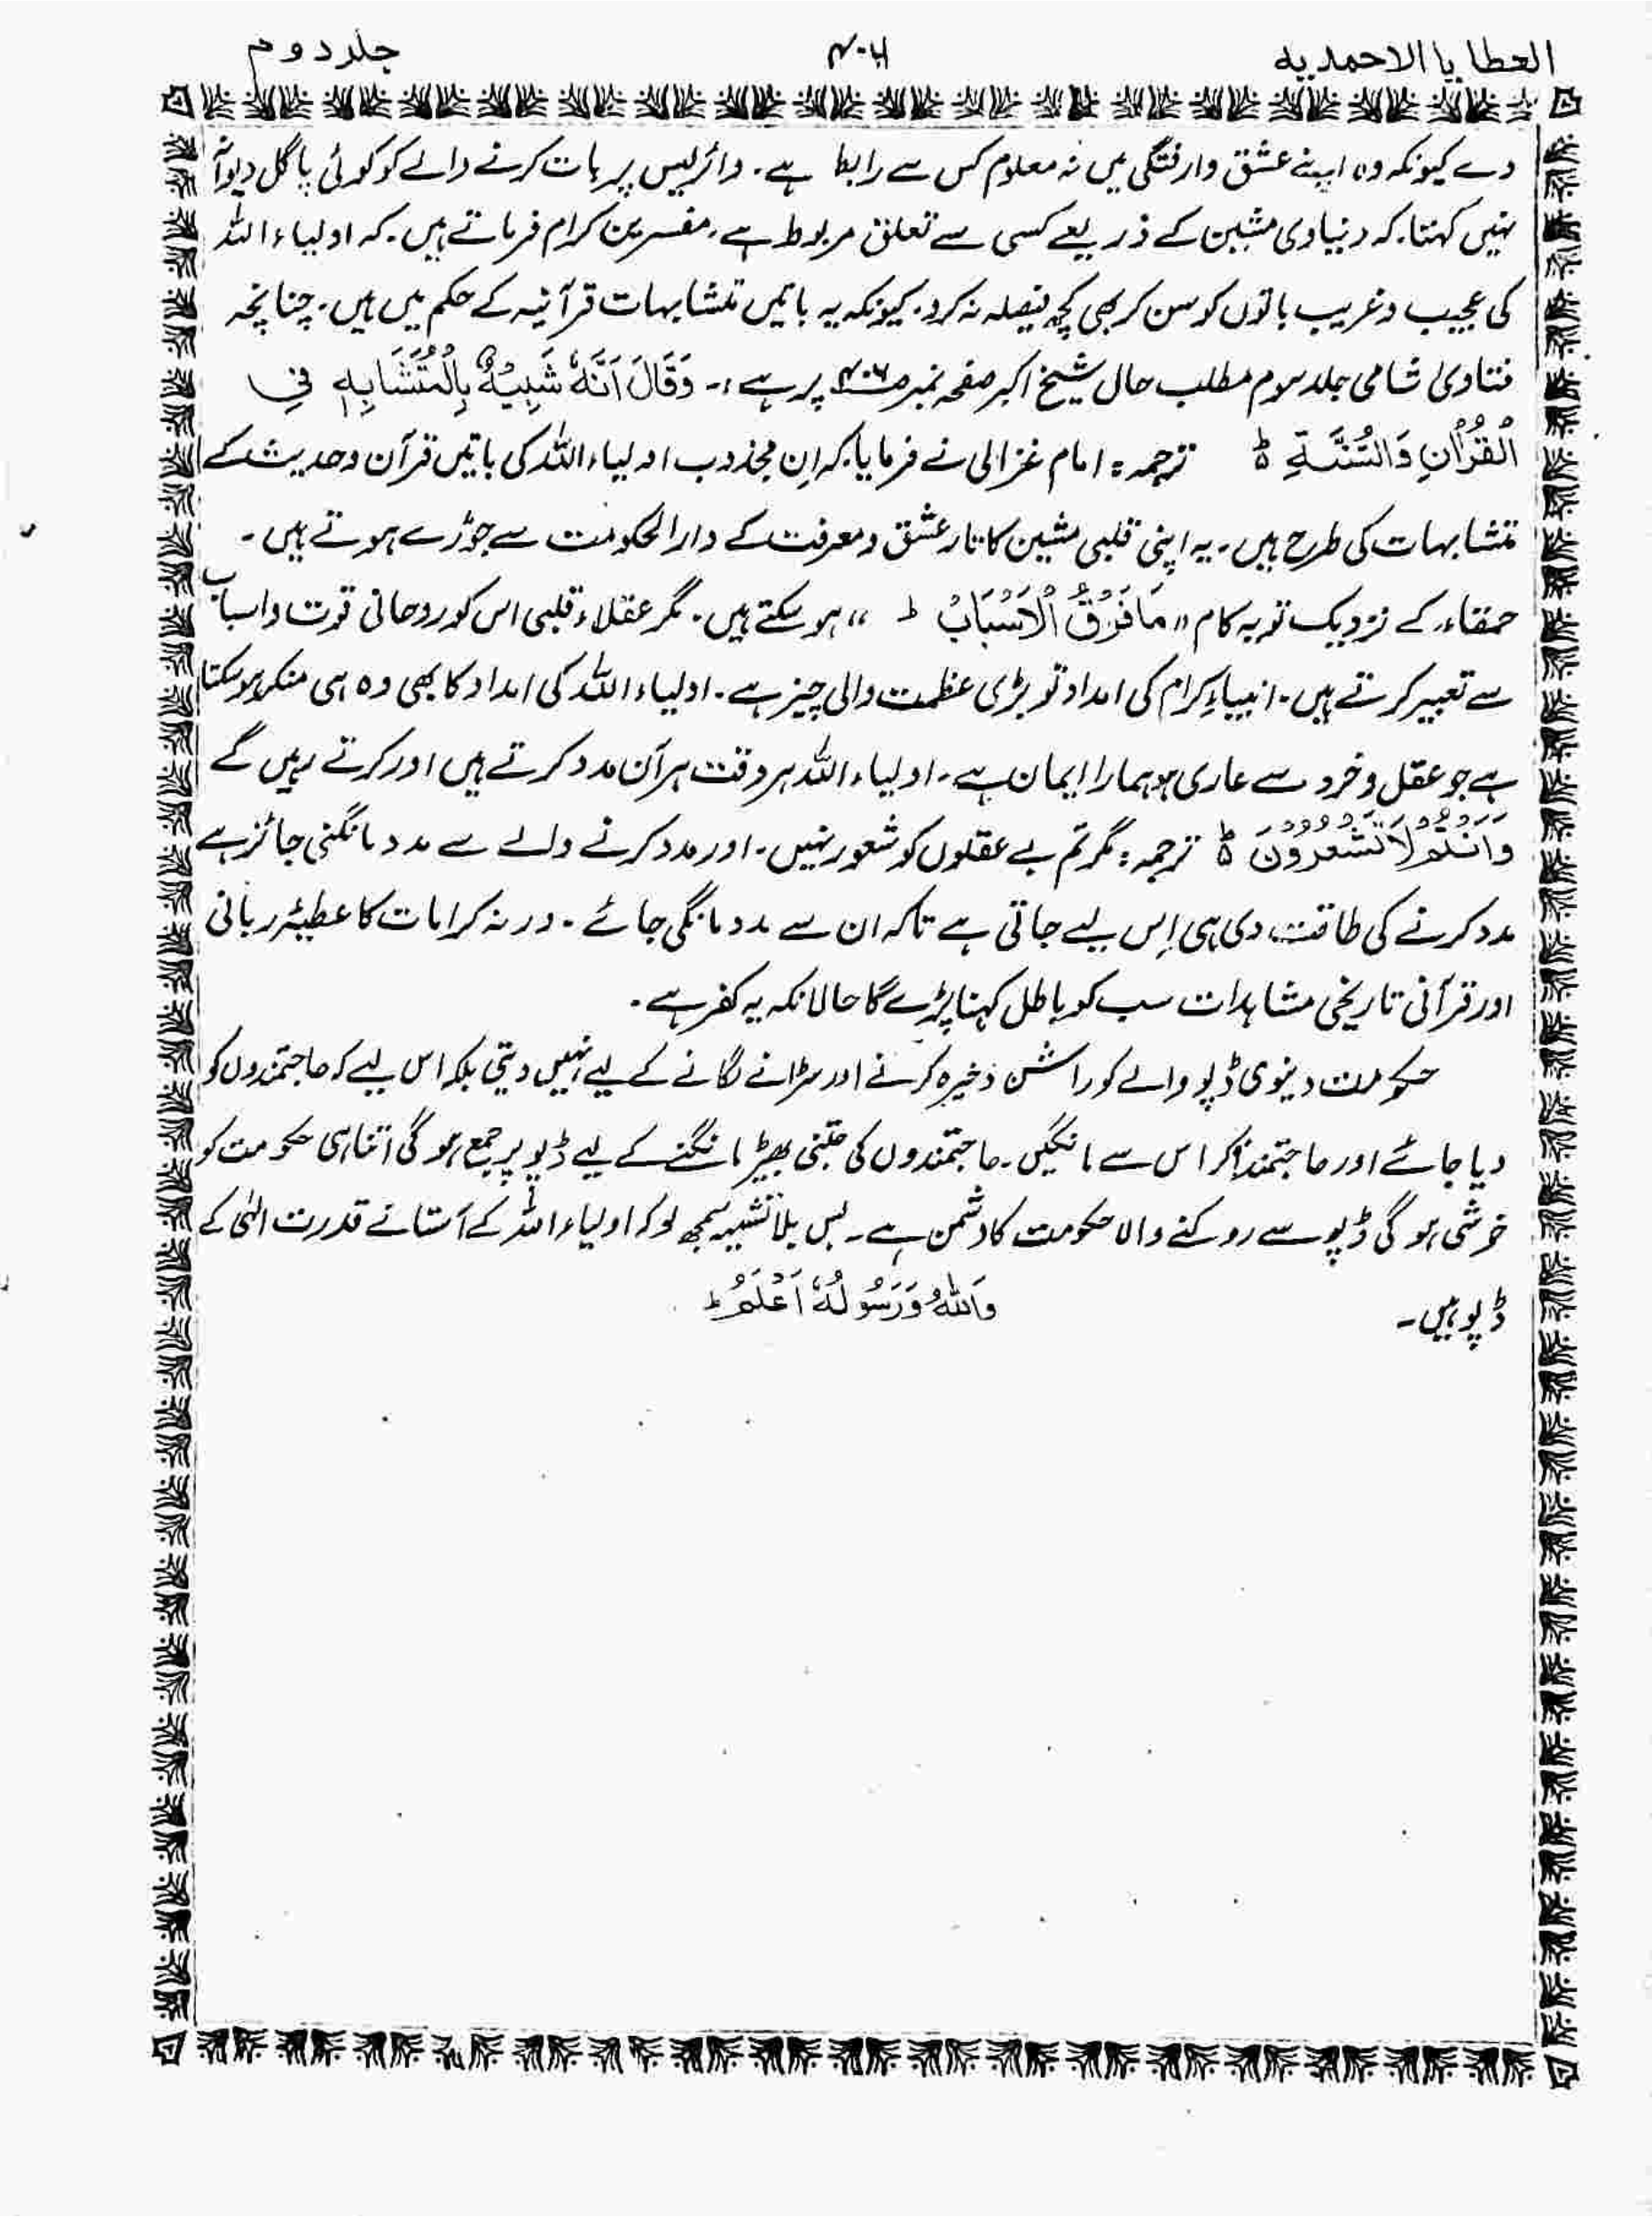 العطایا الاحمدیہ ۴۰۶ جلد دوم
دے کیونکہ وہ اپنے عشق وارفتگی میں نہ معلوم کس سے رابطا ہے۔ وائرلیس پر بات کرنے والے کو کوئی پاگل دیوانہ
نہیں کہتا۔ کہ دنیاوی مشین کے ذریعے کسی سے تعلق مربوط ہے۔ مفسرین کرام فرماتے ہیں۔ کہ اولیاء اللہ
کی عجیب وغریب باتوں کو سن کر بھی کچھ فیصلہ نہ کرو۔ کیونکہ یہ باتیں متشابہات قرآنیہ کے حکم میں ہیں۔ چنانچہ
فتاویٰ شامی جلد سوم مطلب حال شیخ اکبر صفحہ نمبر پر ہے :- وَقَالَ اَنَّہٗ شَبِیْہٌ بِالْمُتَشَابِہِ فِی
الْقُرْاٰنِ وَالسُّنَّۃِ ؕ ترجمہ : امام غزالی نے فرمایا۔ کہ اِن مجذوب اولیاء اللہ کی باتیں قرآن وحدیث کے
متشابہات کی طرح ہیں۔ یہ اپنی قلبی مشین کا تار عشق ومعرفت کے دارالحکومت سے جوڑے ہوتے ہیں۔
حمقاء کے نزدیک تو یہ کام "مَا فَوْقُ الْاَسْبَابُ ط" ہو سکتے ہیں۔ مگر عقلاء قلبی اس کو روحانی قوت واسباب
سے تعبیر کرتے ہیں۔ انبیاءِ کرام کی امداد تو بڑی عظمت والی چیز ہے۔ اولیاء اللہ کی امداد کا بھی وہ ہی منکر ہوسکتا
ہے جو عقل وخرد سے عاری ہو ہمارا ایمان ہے۔ اولیاء اللہ ہر وقت ہر آن مدد کرتے ہیں اور کرتے رہیں گے
وَاَنْتُمْ لَا تَشْعُرُوْنَ ؕ ترجمہ : مگر تم بے عقلوں کو شعور نہیں۔ اور مدد کرنے والے سے مدد مانگنی جائز ہے
مدد کرنے کی طاقت دی ہی اِس لیے جاتی ہے تاکہ ان سے مدد مانگی جائے۔ ورنہ کرامات کا عطیۂ ربانی
اور قرآنی تاریخی مشاہدات سب کو باطل کہنا پڑے گا حالانکہ یہ کفر ہے۔
حکومت دینوی ڈپو والے کو راشن ذخیرہ کرنے اور سڑانے گلانے کے لیے نہیں دیتی بلکہ اس لیے کہ حاجتمندوں کو
دیا جائے اور حاجتمند آکر اس سے مانگیں۔ حاجتمندوں کی جتنی بھیڑ مانگنے کے لیے ڈپو پر جمع ہو گی اتنا ہی حکومت کو
خوشی ہو گی ڈپو سے روکنے والا حکومت کا دشمن ہے۔ بس بلا تشبیہ سمجھ لو کہ اولیاء اللہ کے آستانے قدرت الٰہی کے
ڈپو ہیں۔ وَاللہُ وَرَسُوْلُہٗ اَعْلَمُ ط